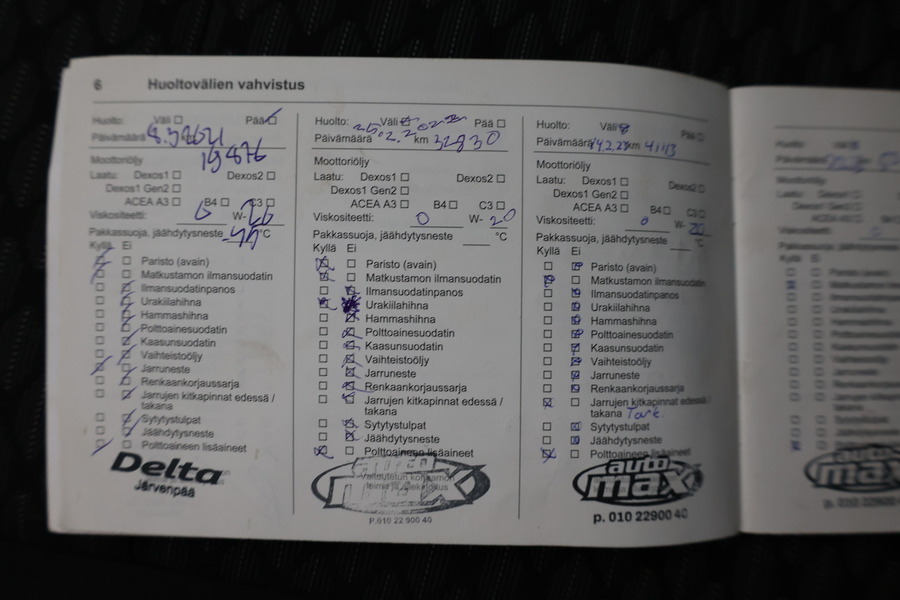 6 Huoltovälien vahvistus
Huolto: Väli ☐ Pää ☐
Päivämäärä
19876
Moottoriöljy
Laatu: Dexos1 ☐ Dexos2 ☐
Dexos1 Gen2 ☐
ACEA A3 ☐ B4 ☐ C3 ☐
Viskositeetti: 0 W- 20
Pakkassuoja, jäähdytysneste °C
Kyllä Ei
Paristo (avain)
Matkustamon ilmansuodatin
Ilmansuodatinpanos
Urakiilahihna
Hammashihna
Polttoainesuodatin
Kaasunsuodatin
Vaihteistoöljy
Jarruneste
Renkaankorjaussarja
Jarrujen kitkapinnat edessä /
takana
Sytytystulpat
Jäähdytysneste
Polttoaineen lisäaineet
Delta
Järvenpää
Huolto: Väli Pää ☐
Päivämäärä 25.02.2022 km 32830
Moottoriöljy
Laatu: Dexos1 ☐ Dexos2 ☐
Dexos1 Gen2 ☐
ACEA A3 ☐ B4 ☐ C3 ☐
Viskositeetti: 0 W- 20
Pakkassuoja, jäähdytysneste °C
Kyllä Ei
Paristo (avain)
Matkustamon ilmansuodatin
Ilmansuodatinpanos
Urakiilahihna
Hammashihna
Polttoainesuodatin
Kaasunsuodatin
Vaihteistoöljy
Jarruneste
Renkaankorjaussarja
Jarrujen kitkapinnat edessä /
takana
Sytytystulpat
Jäähdytysneste
Polttoaineen lisäaineet
auto
max
P.010 22 900 40
Huolto: Väli Pää ☐
Päivämäärä 14.2.23 km 41113
Moottoriöljy
Laatu: Dexos1 ☐ Dexos2 ☐
Dexos1 Gen2 ☐
ACEA A3 ☐ B4 ☐ C3 ☐
Viskositeetti: 0 W- 20
Pakkassuoja, jäähdytysneste °C
Kyllä Ei
Paristo (avain)
Matkustamon ilmansuodatin
Ilmansuodatinpanos
Urakiilahihna
Hammashihna
Polttoainesuodatin
Kaasunsuodatin
Vaihteistoöljy
Jarruneste
Renkaankorjaussarja
Jarrujen kitkapinnat edessä /
takana Tark.
Sytytystulpat
Jäähdytysneste
Polttoaineen lisäaineet
auto
max
p. 010 22900 40
auto
max